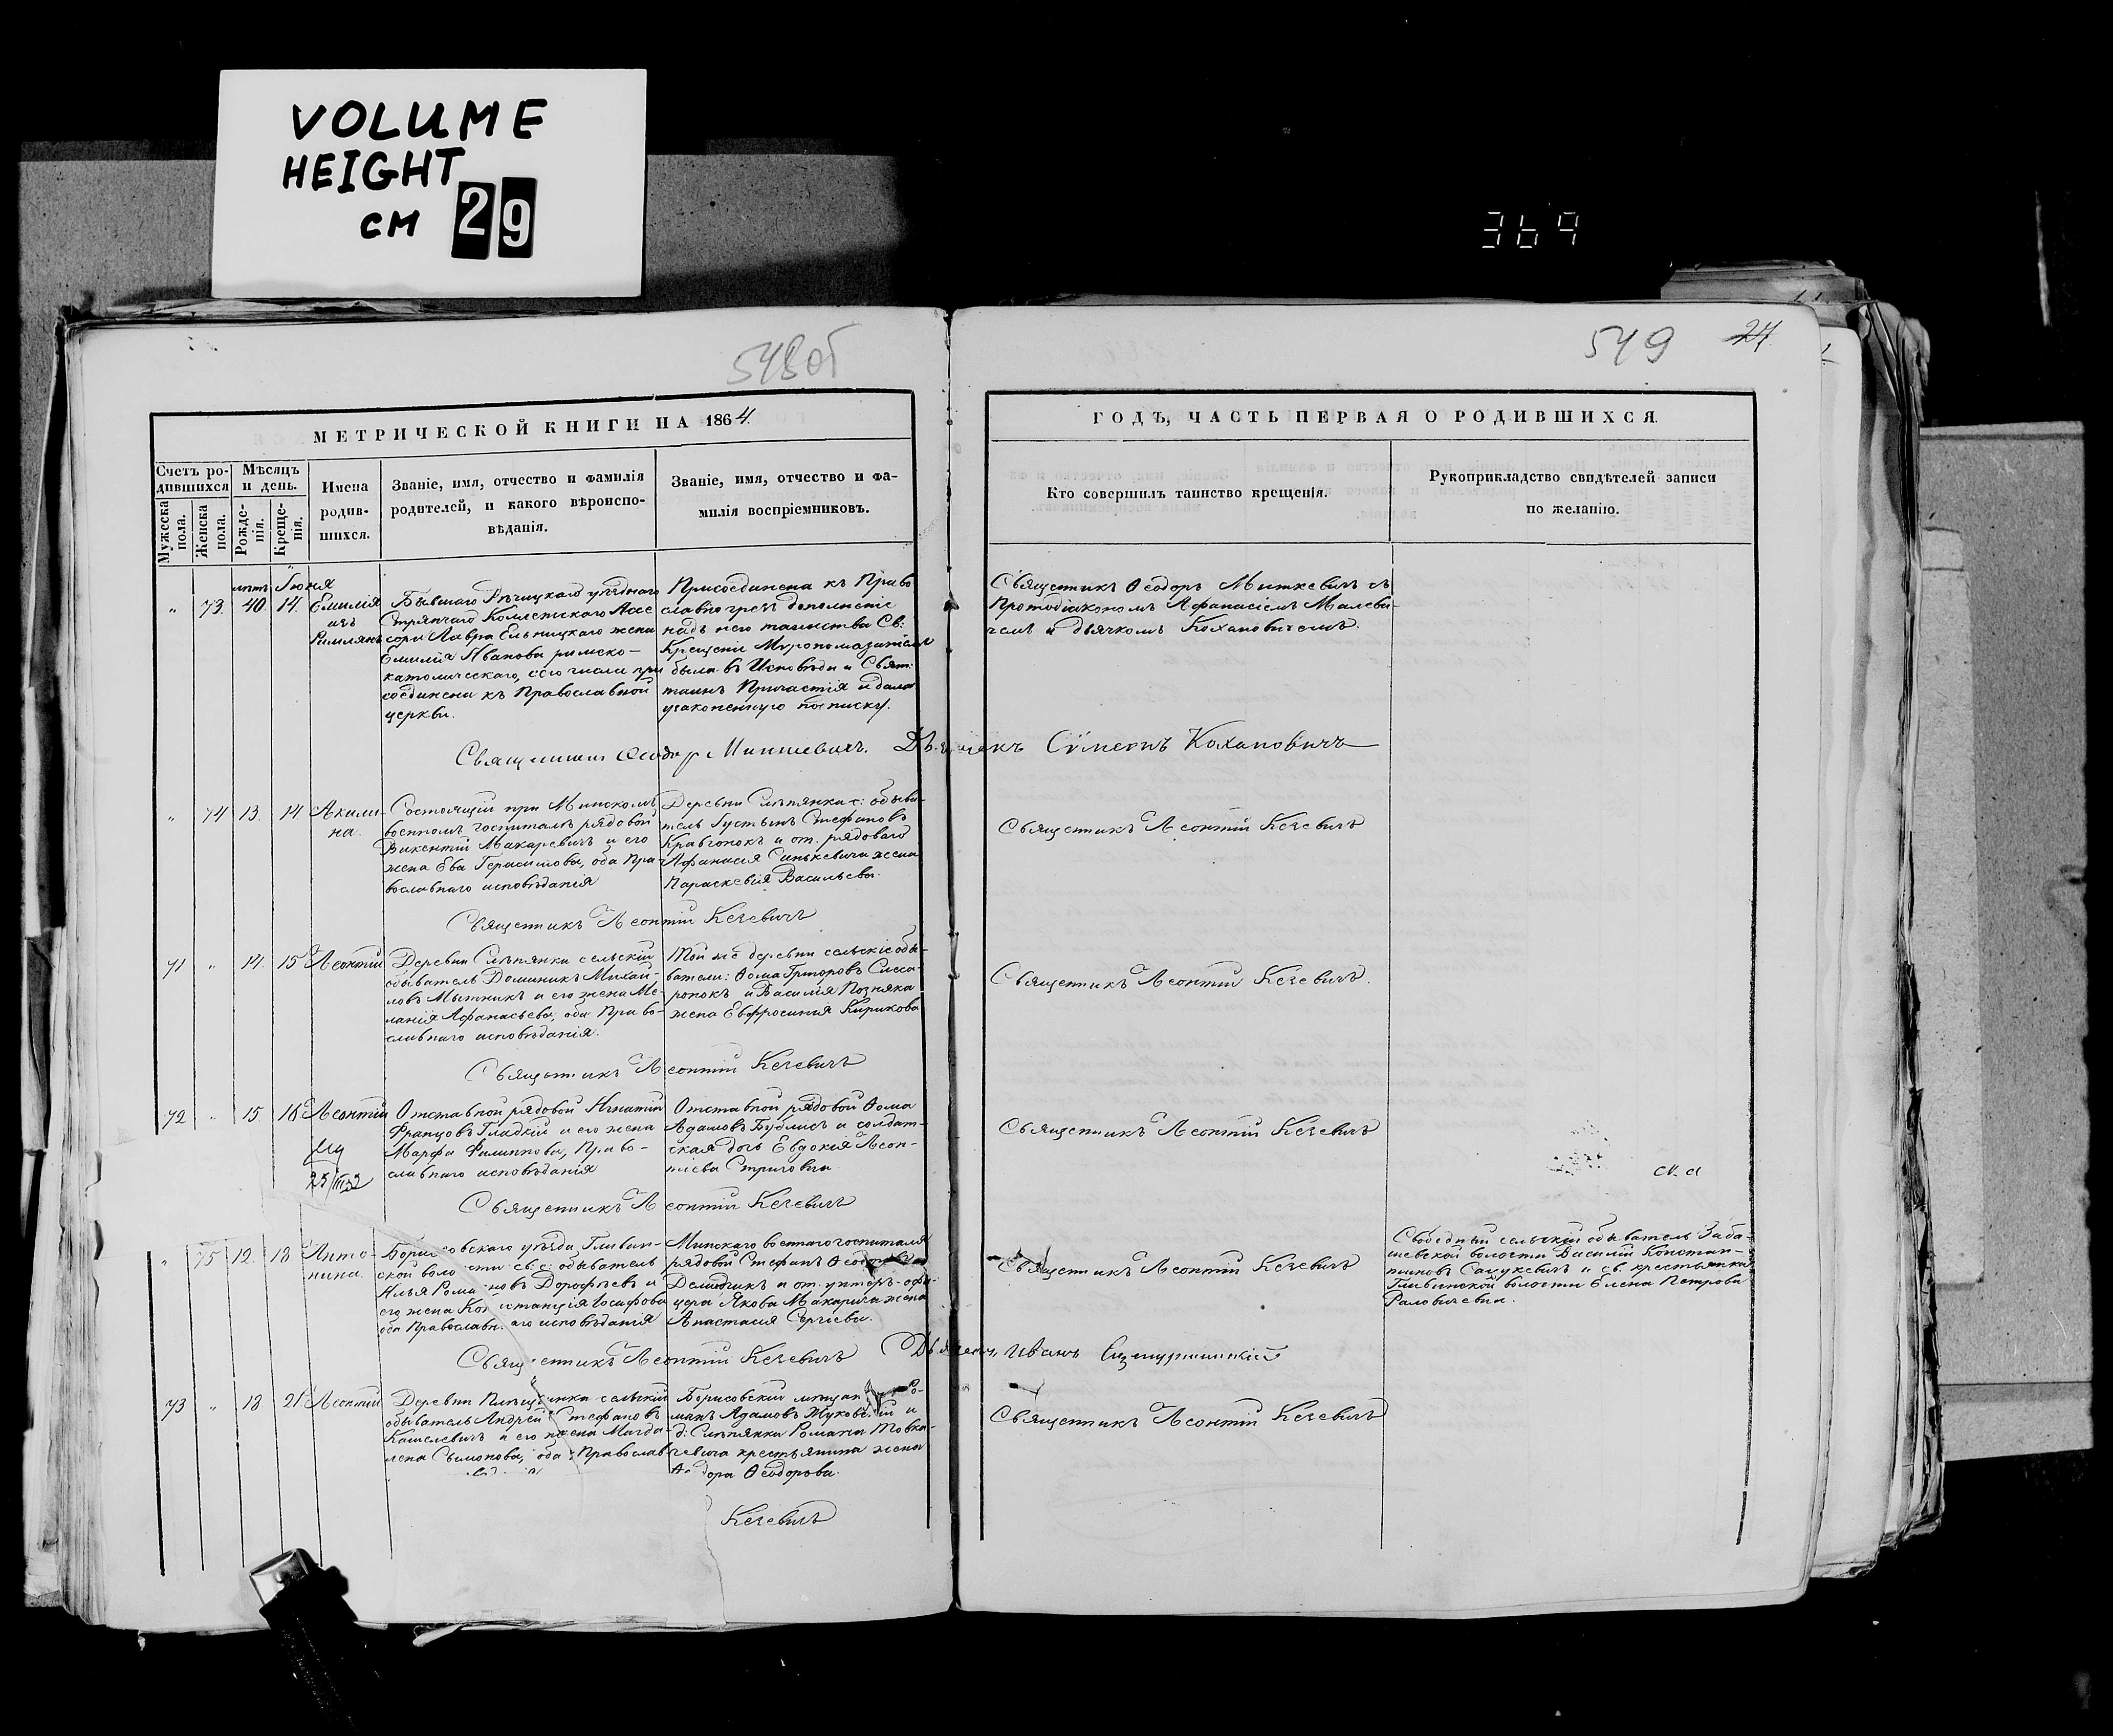 VOLUME
HEIGHT
CM 29
369
548об
549 27
МЕТРИЧЕСКОЙ КНИГИ НА 1864.
ГОДЪ, ЧАСТЬ ПЕРВАЯ О РОДИВШИХСЯ.
Счетъ ро-
дившихся
Мужеска пола.
Женска пола.
Мѣсяцъ
и день.
Рожде-
нія.
Креще-
нія.
Имена
родив-
шихся.
Званіе, имя, отчество и фамилія
родителей, и какого вѣроиспо-
вѣданія.
Званіе, имя, отчество и фа-
милія воспріемниковъ.
Кто совершилъ таинство крещенія.
Рукоприкладство свидѣтелей записи
по желанію.
лѣтъ Іюня
" 73. 40. 14. Емилія
изъ
Римлянъ
Бывшаго Рѣчицкаго уѣзднаго
Стряпчаго Колежскаго Ассе
сора Лавра Ельницкаго жена
Емилія Иванова римско-
католическаго, сего числа при
соединена къ Православной
церкви.
Присоединена къ Право
славію чрезъ дополненіе
надъ нею таинства Св:
Крещенія Муропомазаніемъ
была въ Исповѣди и Свят:
таинъ Причастія и дала
узаконенную подписку.
Священникъ Ѳеодоръ Миткевичъ съ
Протодіакономъ Афанасіемъ Малеви-
чемъ и дьячкомъ Кохановичемъ.
Священникъ Ѳеодоръ Миткевичъ. Дьячекъ Сѵмеонъ Кохановичъ
" 74 13. 14 Акили-
на.
Состоящій при Минскомъ
военномъ госпиталѣ рядовой
Викентій Макаревичъ и его
жена Ева Герасимова, оба Пра-
вославнаго исповѣданія
Деревни Слѣпянки с: обыва-
тель Густынъ Стефановъ
Кравчонокъ и от. рядоваго
Афанасія Синькевича жена
Параскевія Васильева.
Священникъ Леонтій Кечевичъ
Священникъ Леонтій Кечевичъ
71 " 14. 15 Леонтій
Деревни Слѣпянки сельскій
обыватель Доминикъ Михай-
ловъ Мытникъ и его жена Ме-
ланія Афанасьева, оба Право-
славнаго исповѣданія.
Той же деревни сельскіе обы-
ватели: Ѳома Григоровъ
и Василія Позняка
жена Евфросинія Кирикова
Священникъ Леонтій Кечевичъ.
Священникъ Леонтій Кечевичъ
72 " 15 18 Леонтій
Отставной рядовой Игнатій
Францовъ Гладкій и его жена
Марфа Филиппова, Право-
славнаго исповѣданія
Отставной рядовой Ѳома
Адамовъ Бублисъ и солдат-
ская дочь Евдокія Леон-
тіева
Священникъ Леонтій Кечевичъ
Священникъ Леонтій Кечевичъ
" 75 12. 18 Анто-
нина.
Борисовскаго уѣзда Гливин-
ской волости св: с: обыватель
Илья Романовъ Дорофѣевъ и
его жена Констанція Іосифова
оба Православнаго исповѣданія
Минскаго военнаго госпиталя
рядовой Стефанъ
Демидчикъ и от. унтеръ-офи-
цера Якова Макарича жена
Анастасія Сергіева.
Священникъ Леонтій Кечевичъ
Свободный сельскій обыватель Заба-
шевской волости Василій Констан-
тиновъ Сацукевичъ и св. крестьянка
Гливинской волости Елена Петрова
Священникъ Леонтій Кечевичъ Дьячекъ Иванъ
73 " 18 21 Леонтій
Деревни сельскій
обыватель Андрей Стефановъ
Кашелевичъ и его жена Магда-
лена Сымонова, оба Православ
Борисовскій мѣщан Ро-
манъ Адамовъ Жуковскій и
д: Слѣпянки Романа Товка-
чевича крестьянина жена
Ѳеодора Ѳеодорова.
Священникъ Леонтій Кечевичъ
Кечевичъ